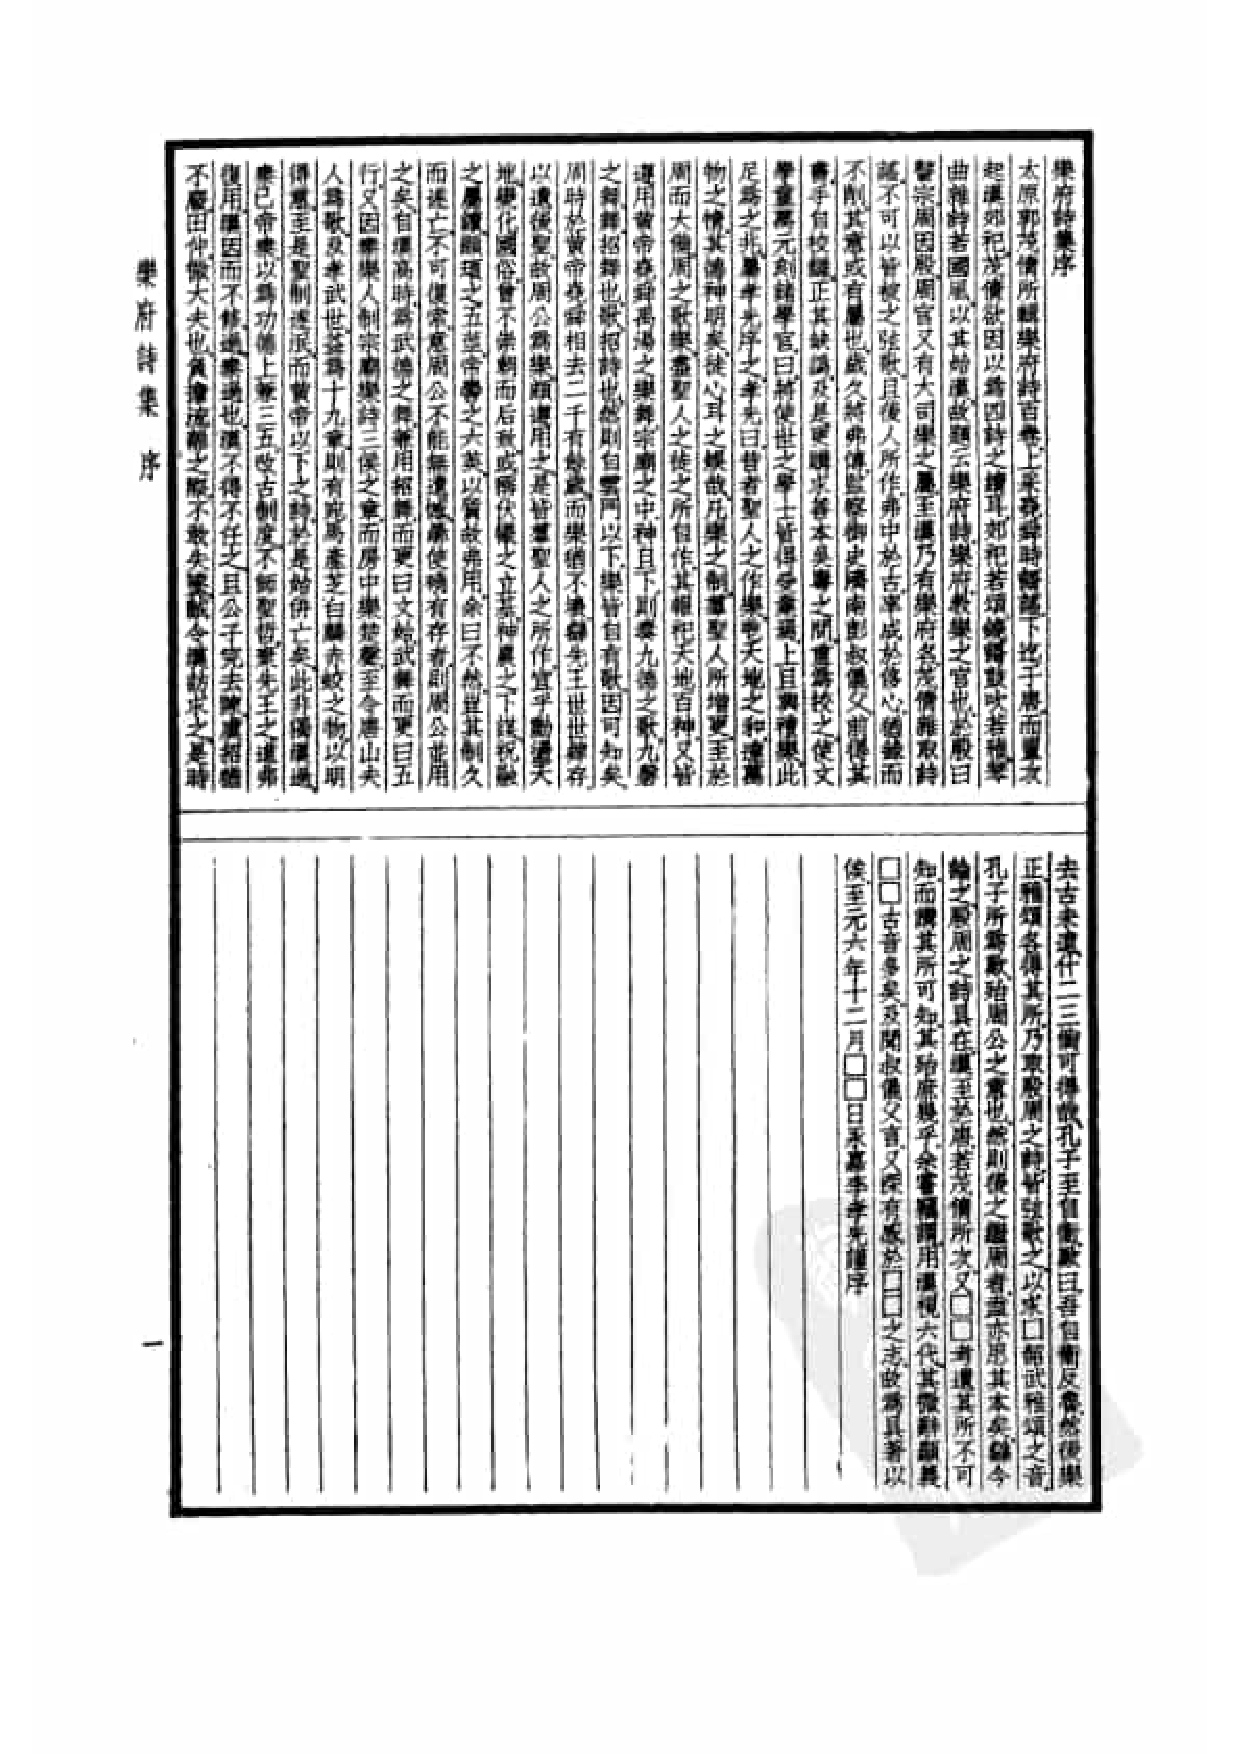 樂府詩集序
太原郭茂倩所輯樂府詩百卷上采堯舜時歌謠下迄于唐而置次
起漢郊祀茂倩欲因以爲四詩之續耳郊祀若頌鐃歌鼓吹若雅琴
曲雜詩若國風以其始漢故題云樂府詩樂府教樂之官也於殷曰
瞽宗周因殷周官又有大司樂之屬至漢乃有樂府名茂倩雜取詩
謠不可以皆被之弦歌且後人所作弗中於古率成於侈心猶錄而
不削其意或有屬也歲久將弗傳監察御史濟南彭叔儀父前得其
書手自校讎正其缺譌及是更購求善本吳粵之間重爲校之使文
學童萬元刻諸學官曰將使世之學士皆得受業焉上且興禮樂此
足爲之兆屬孝光序之孝光曰昔者聖人之作樂也天地之和達萬
物之情其德神明矣徒心耳之娛故凡樂之制羣聖人所增更至於
周而大備周之歌樂盡聖人之徒之所自作其報祀天地百神又皆
遵用黃帝堯舜禹湯之樂舞宗廟之中神且下則奏九德之歌九磬
之舞舞招舞也歌招詩也然則自雲門以下樂皆自有歌因可知矣
周時於黃帝堯舜相去二千有餘歲而樂猶不壞繇先王世世雜存
以遺後聖故周公爲樂願遵用之是皆羣聖人之所作宜乎動盪天
地變化國俗曾不崇朝而后
之屬讀顓頊之五莖帝嚳之六英以質故弗用余曰不然豈其制久
而遂亡不可復索意周公不能無遺憾學使曉有存者則周公並用
之矣自漢高時爲武德之舞兼用招舞而更曰文始武舞而更曰五
行又因秦樂人制宗廟樂詩三侯之章而房中樂楚聲至令唐山夫
人爲歌及孝武世益爲十九章則有宛馬產芝白麟赤蛟之物以明
得意至是聖制遂泯而黃帝以下之詩於是始併亡矣此非獨漢過
秦已帝秦以爲功德上兼三五改古制度不師聖哲棄先王之道弗
復用漢因而不修過秦過也漢不得不任之且公子完去陳虞招猶
不廢田仲儆大夫也負擔流離之際不敢失墜假令漢訪求之是時
去古未遠什二三尙可得故孔子至自衞歎曰吾自衞反魯然後樂
正雅頌各得其所乃取殷周之詩皆弦歌之以求□韶武雅頌之音
孔子所爲歎殆周公之意也然則後之繼周者盍亦思其本矣繇今
論之殷周之詩具在漢至於唐若茂倩所次又□□考遺其所不可
知而讀其所可知其殆庶幾乎余嘗竊謂用漢視六代其微辭顯義
□□古音多矣及聞叔儀父言又深有感於□□之志故爲具著以
俟至元六年十二月□□日永嘉李孝光謹序
樂府詩集 序
一